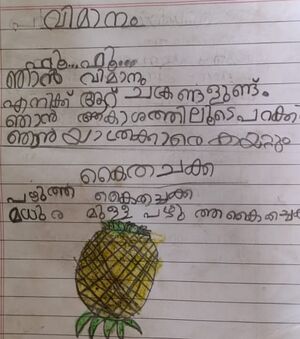 വിമാനം
ഹൂ... ഹൂ...
ഞാൻ വിമാനം
എനിക്ക് ആറ് ചക്രങ്ങളുണ്ട്.
ഞാൻ ആകാശത്തിലൂടെ പറക്കും
ഞാൻ യാത്രക്കാരെ കയറ്റും
കൈതചക്ക
പഴുത്ത കൈതച്ചക്ക
മധുര മുള്ള പഴുത്ത കൈതച്ചക്ക